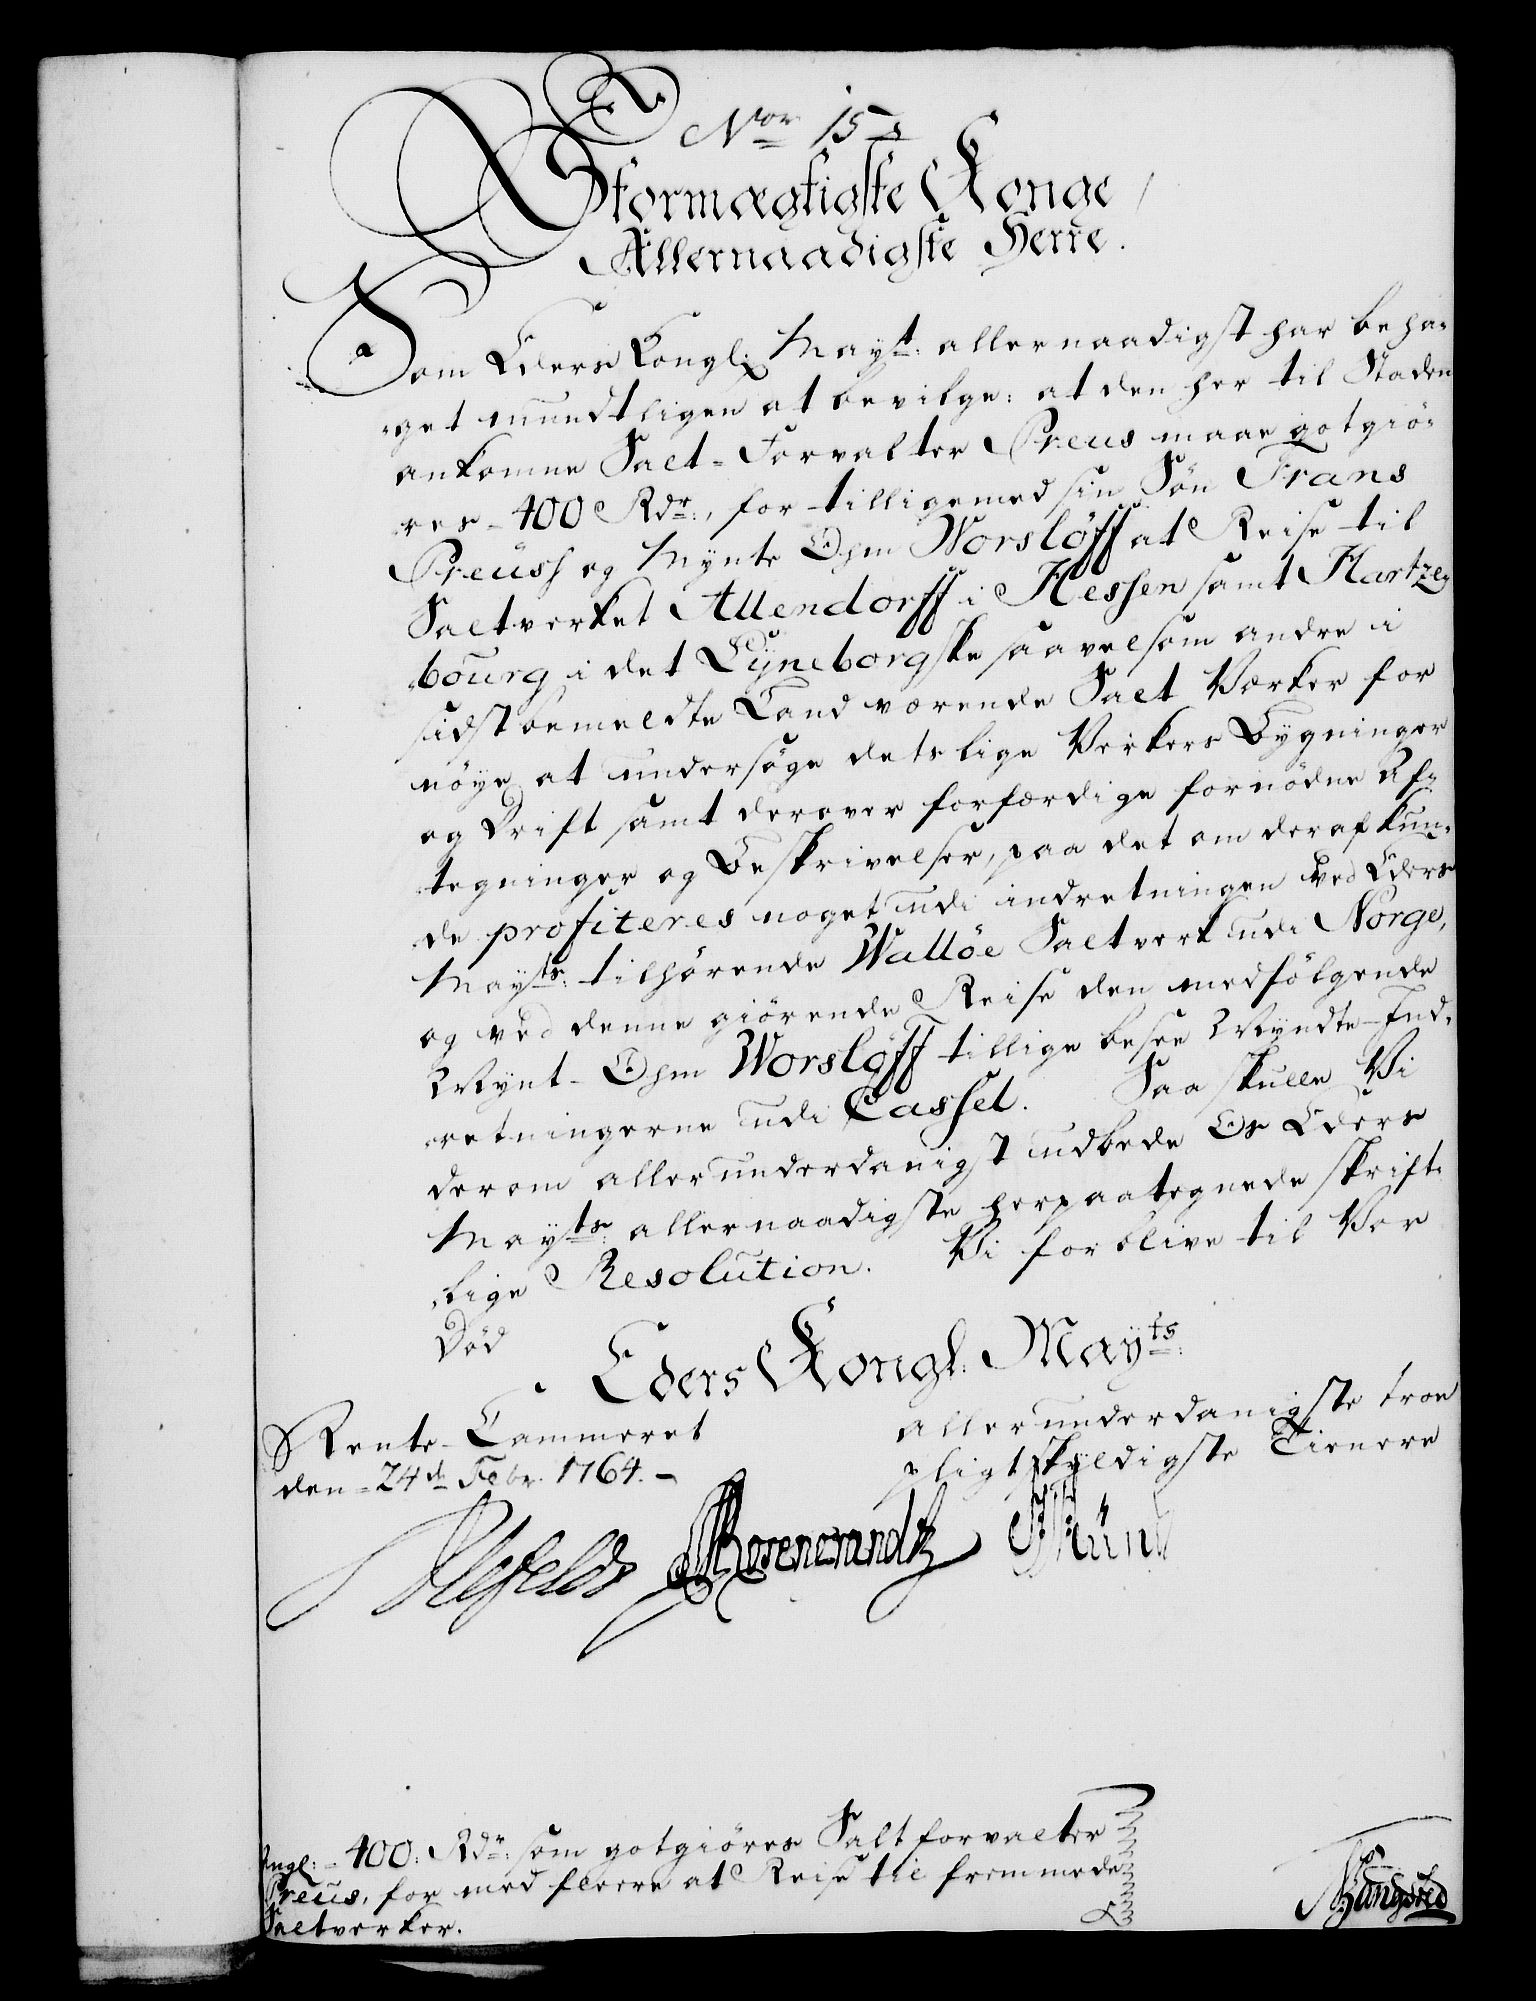 Nor 15
Stormægtigste Konge
Allernaadigste Herre.
Som Eders Kongl: Mayt: allernaadigst har beha-
get mundtligen at bevilge: at den her til Staden
ankomne Salt-Forvalter Preus maae gotgiö-
res 400 Rdr:, for tilligemed sin Sön Frans
Preuss og Mynte Ohm Worslöff at Reise til
Saltverket Allendorff i Hessen samt Hartze
bourg i det Lyneborgske saavelsom andre i
sidstbemeldte Land værende Salt Værker for
nöye at undersöge detslige Verkers Bygninger
og Drift samt derover forfærdige fornödne Af-
tegninger og Beskrivelser, paa det om deraf kun-
de profiteres noget udi indretningen ved Eders
Mayts: tilhörende Wallöe Saltverk udi Norge,
og ved denne giörende Reise den medfölgende
Mynt-Ohm Worslöff tillige besee Myndte-Ind-
retningerne udi Cassel. Saa skulle Vi
derom allerunderdanigst udbede Os Eders
Mayts: allernaadigste herpaategnede skrift-
lige Resolution. Vi forblive til Vor
Död
Eders Kongl: Mayts:
Rente-Cammeret
den 24de Febr. 1764.
allerunderdanigste troe
pligtskyldigste Tienere
Ahlefeldt Rosencrandtz
Angl: 400: Rdr: som gotgiöres Saltforvalter
Preus, for med fleere at Reise til fremmede
Saltverker.